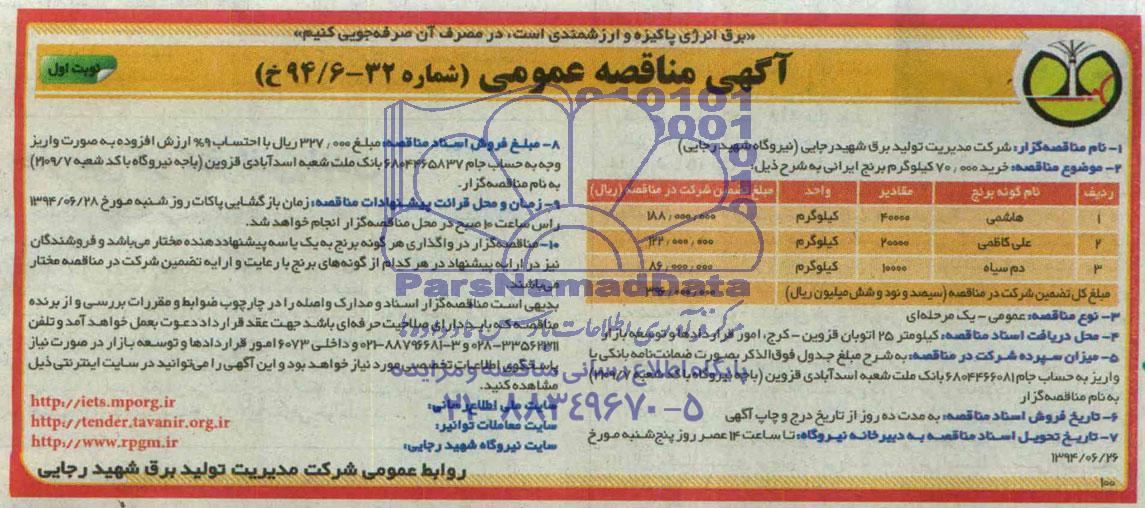 «برق انرژی پاکیزه و ارزشمندی است، در مصرف آن صرفه‌جویی کنیم»
آگهی مناقصه عمومی (شماره ۳۲-۹۴/۶ خ)
نوبت اول
۱- نام مناقصه‌گزار: شرکت مدیریت تولید برق شهید رجایی (نیروگاه شهید رجایی)
۲- موضوع مناقصه: خرید ۷۰٫۰۰۰ کیلوگرم برنج ایرانی به شرح ذیل:
ردیف نام گونه برنج مقادیر واحد مبلغ تضمین شرکت در مناقصه (ریال)
۱ هاشمی ۴۰۰۰۰ کیلوگرم ۱۸۸٫۰۰۰٫۰۰۰
۲ علی کاظمی ۲۰۰۰۰ کیلوگرم ۱۲۲٫۰۰۰٫۰۰۰
۳ دم سیاه ۱۰۰۰۰ کیلوگرم ۸۶٫۰۰۰٫۰۰۰
مبلغ کل تضمین شرکت در مناقصه (سیصد و نود و شش میلیون ریال) ۳۹۶٫۰۰۰٫۰۰۰
۳- نوع مناقصه: عمومی - یک مرحله‌ای
۴- محل دریافت اسناد مناقصه: کیلومتر ۲۵ اتوبان قزوین - کرج، امور قراردادها و توسعه بازار
۵- میزان سپرده شرکت در مناقصه: به شرح مبلغ جدول فوق‌الذکر بصورت ضمانت‌نامه بانکی یا
واریز به حساب جام ۶۸۰۴۴۶۶۰۸۱ بانک ملت شعبه اسدآبادی قزوین (باجه نیروگاه با کد شعبه ۲۱۰۹/۷)
به نام مناقصه‌گزار
۶- تاریخ فروش اسناد مناقصه: به مدت ده روز از تاریخ درج و چاپ آگهی
۷- تاریخ تحویل اسناد مناقصه به دبیرخانه نیروگاه: تا ساعت ۱۴ عصر روز پنج‌شنبه مورخ
۱۳۹۴/۰۶/۲۶
۱۰۰
۸- مبلغ فروش اسناد مناقصه: مبلغ ۳۲۷٫۰۰۰ ریال با احتساب ۹% ارزش افزوده به صورت واریز
وجه به حساب جام ۶۸۰۴۴۶۵۸۳۷ بانک ملت شعبه اسدآبادی قزوین (باجه نیروگاه با کد شعبه ۲۱۰۹/۷)
به نام مناقصه‌گزار.
۹- زمان و محل قرائت پیشنهادات مناقصه: زمان بازگشایی پاکات روز شنبه مورخ ۱۳۹۴/۰۶/۲۸
راس ساعت ۱۰ صبح در محل مناقصه‌گزار انجام خواهد شد.
۱۰- مناقصه‌گزار در واگذاری هر گونه برنج به یک یا سه پیشنهاددهنده مختار می‌باشد و فروشندگان
نیز در ارایه پیشنهاد در هر کدام از گونه‌های برنج با رعایت و ارایه تضمین شرکت در مناقصه مختار
می‌باشند.
بدیهی است مناقصه‌گزار اسناد و مدارک واصله را در چارچوب ضوابط و مقررات بررسی و از برنده
مناقصه که باید دارای صلاحیت حرفه‌ای باشد جهت عقد قرارداد دعوت بعمل خواهد آمد و تلفن
۳۳۵۶۲۲۱۱-۰۲۸ و ۳-۸۸۷۹۶۶۸۱-۰۲۱ و داخلی ۶۰۷۳ امور قراردادها و توسعه بازار در صورت نیاز
پاسخگوی اطلاعات تخصصی مورد نیاز خواهد بود و این آگهی را می‌توانید در سایت اینترنتی ذیل
مشاهده کنید.
سایت ملی اطلاع رسانی: http://iets.mporg.ir
سایت معاملات توانیر: http://tender.tavanir.org.ir
سایت نیروگاه شهید رجایی: http://www.rpgm.ir
روابط عمومی شرکت مدیریت تولید برق شهید رجایی
ParsNamadData
پایگاه اطلاع رسانی مناقصه و مزایده
۰۲۱-۸۸۳۴۹۶۷۰-۵